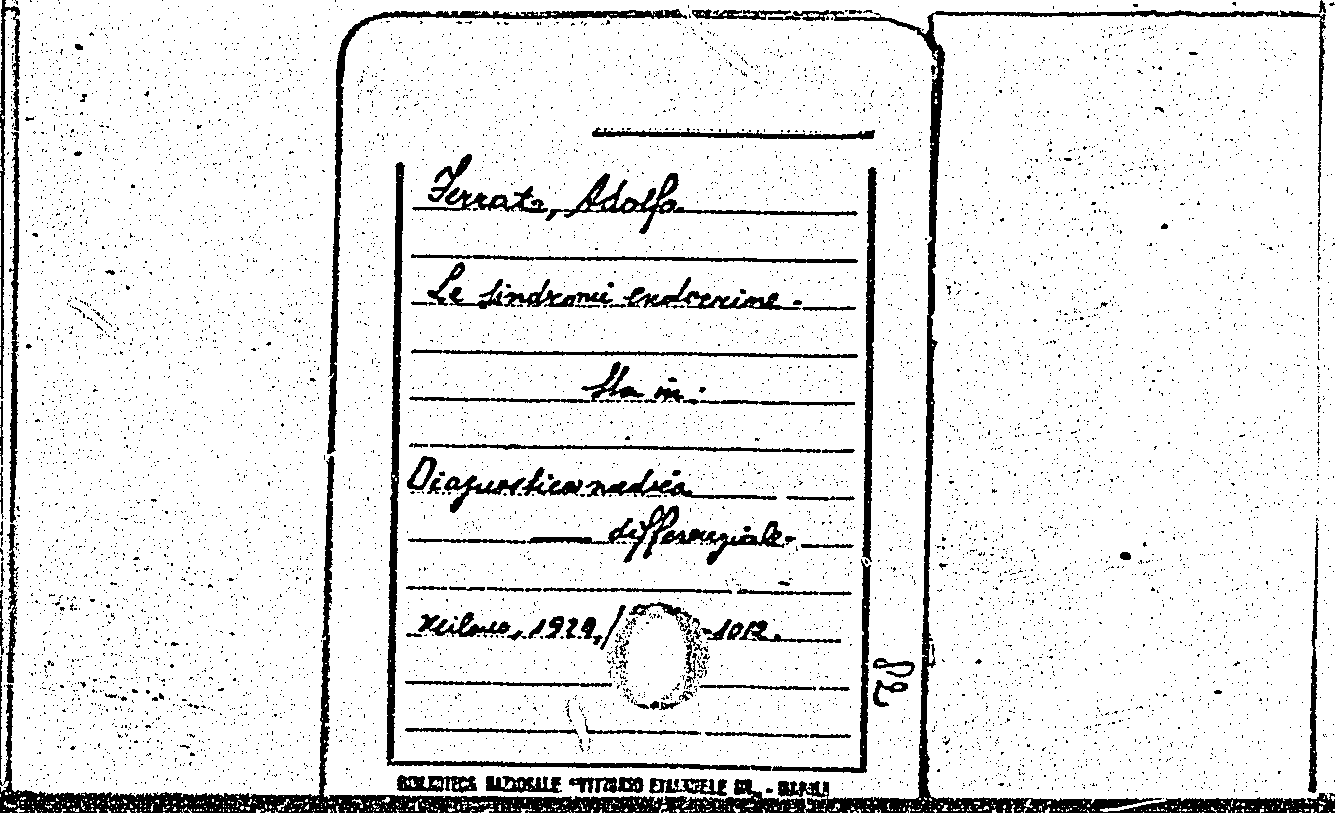 Ferrata, Adolfo.
Le sindromi endocrine.
Sta in:
Diagnostica medica
differenziale.
Milano, 1929, -1012.
BIBLIOTECA NAZIONALE "VITTORIO EMANUELE III" - NAPOLI